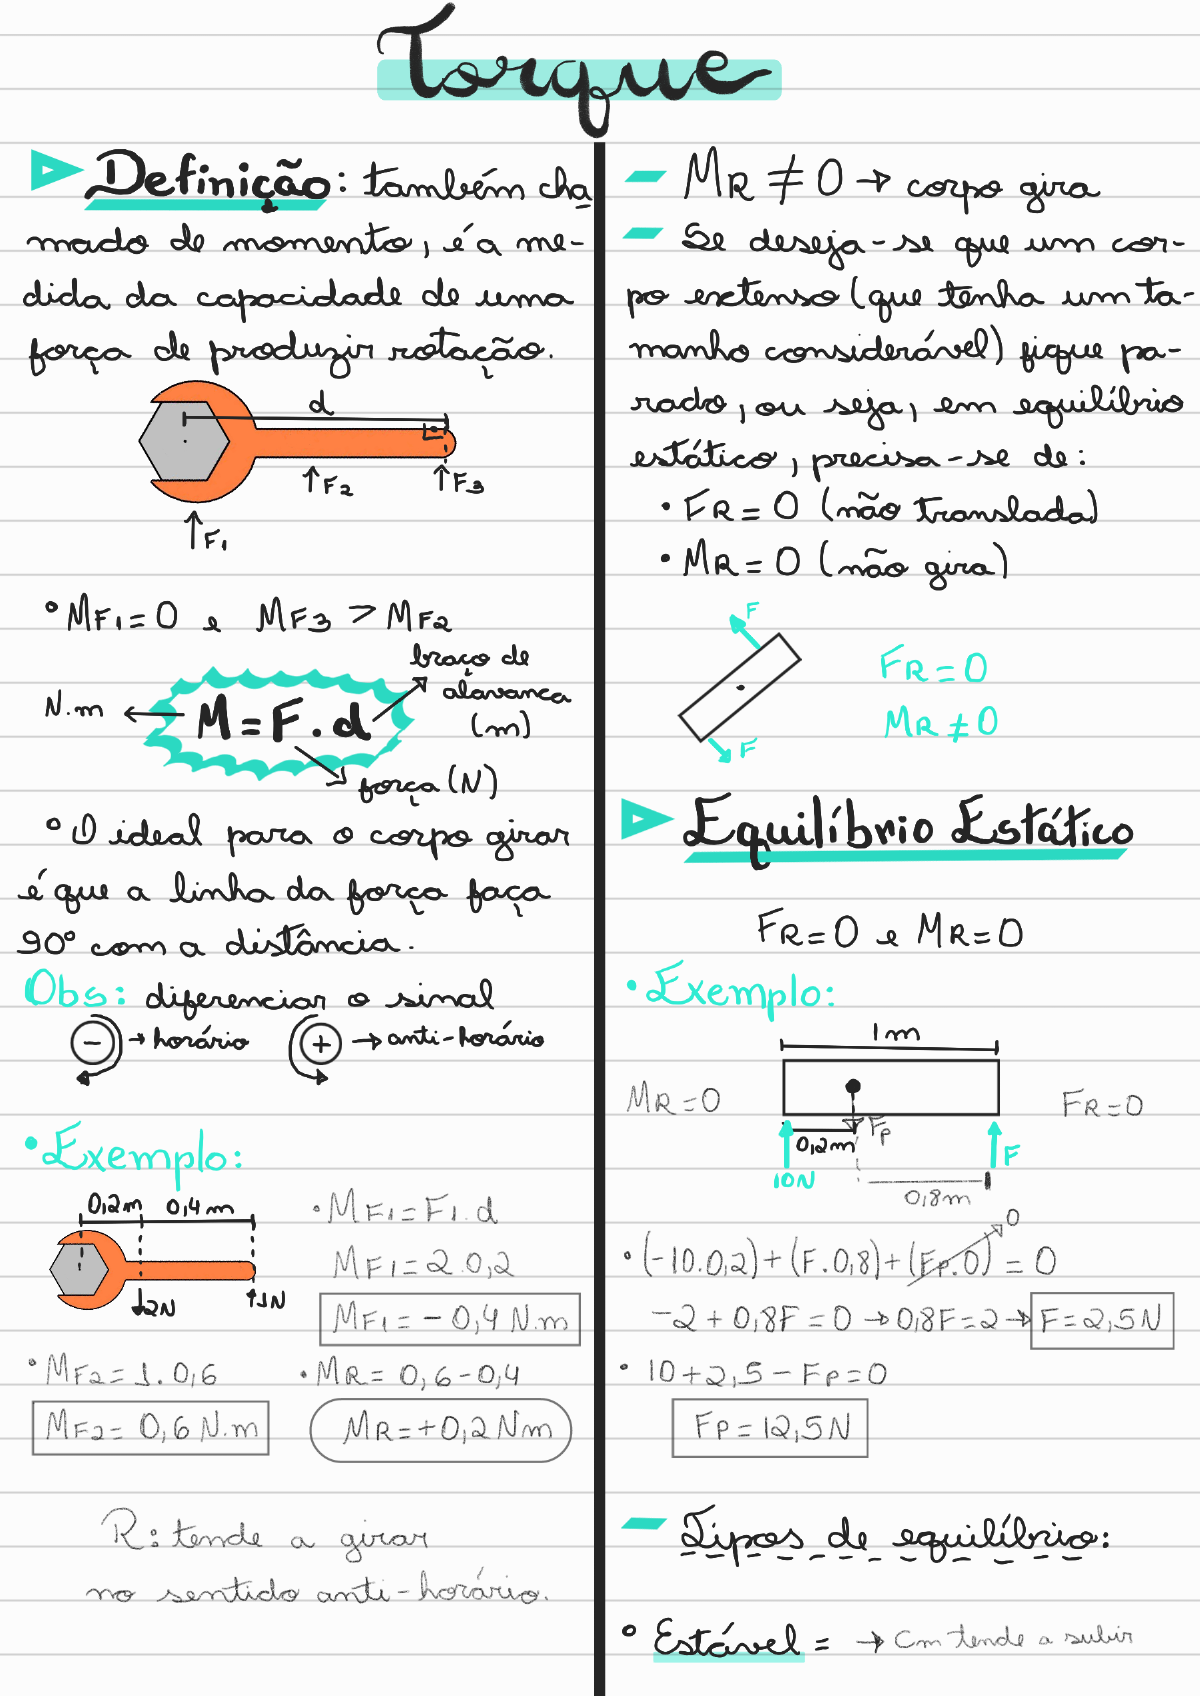 Torque
Definição: também cha
mado de momento, é a me-
dida da capacidade de uma
força de produzir rotação.
d
F2
F3
F1
MF1 = 0 e MF3 > MF2
braço de
alavanca
(m)
N.m
M = F . d
força (N)
O ideal para o corpo girar
é que a linha da força faça
90° com a distância.
Obs: diferenciar o sinal
- → horário + → anti-horário
• Exemplo:
0,2m 0,4m
2N
1N
• MF1 = F1 . d
MF1 = 2.0,2
MF1 = -0,4 N.m
• MF2 = 1. 0,6
MF2 = 0,6 N.m
• MR = 0,6 - 0,4
MR = +0,2 Nm
R: tende a girar
no sentido anti-horário.
- MR ≠ 0 → corpo gira
- Se deseja-se que um cor-
po extenso (que tenha um ta-
manho considerável) fique pa-
rado, ou seja, em equilíbrio
estático, precisa-se de:
• FR = 0 (não translada)
• MR = 0 (não gira)
F
F
FR = 0
MR ≠ 0
Equilíbrio Estático
FR = 0 e MR = 0
• Exemplo:
1m
MR = 0
FR = 0
FP
0,2m
10N
F
0,8m
• (-10.0,2) + (F.0,8) + (FP.0) = 0
0
-2 + 0,8F = 0 → 0,8F = 2 → F = 2,5N
• 10 + 2,5 - FP = 0
FP = 12,5N
- Tipos de equilíbrio:
• Estável = → Cm tende a subir